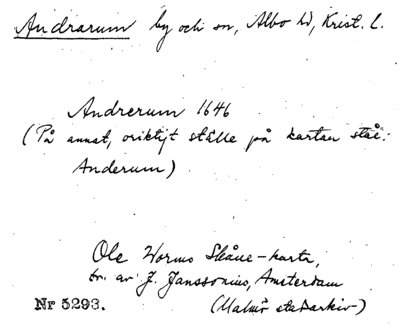 Andrarum by och sn, Albo hd, Krist. l.
Andrerum 1646
(På annat, oriktigt ställe på kartan står:
Anderum)
Ole Worms Skåne-karta,
tr. av J. Janssonius, Amsterdam
Nr 5293. (Malmö stadsarkiv)